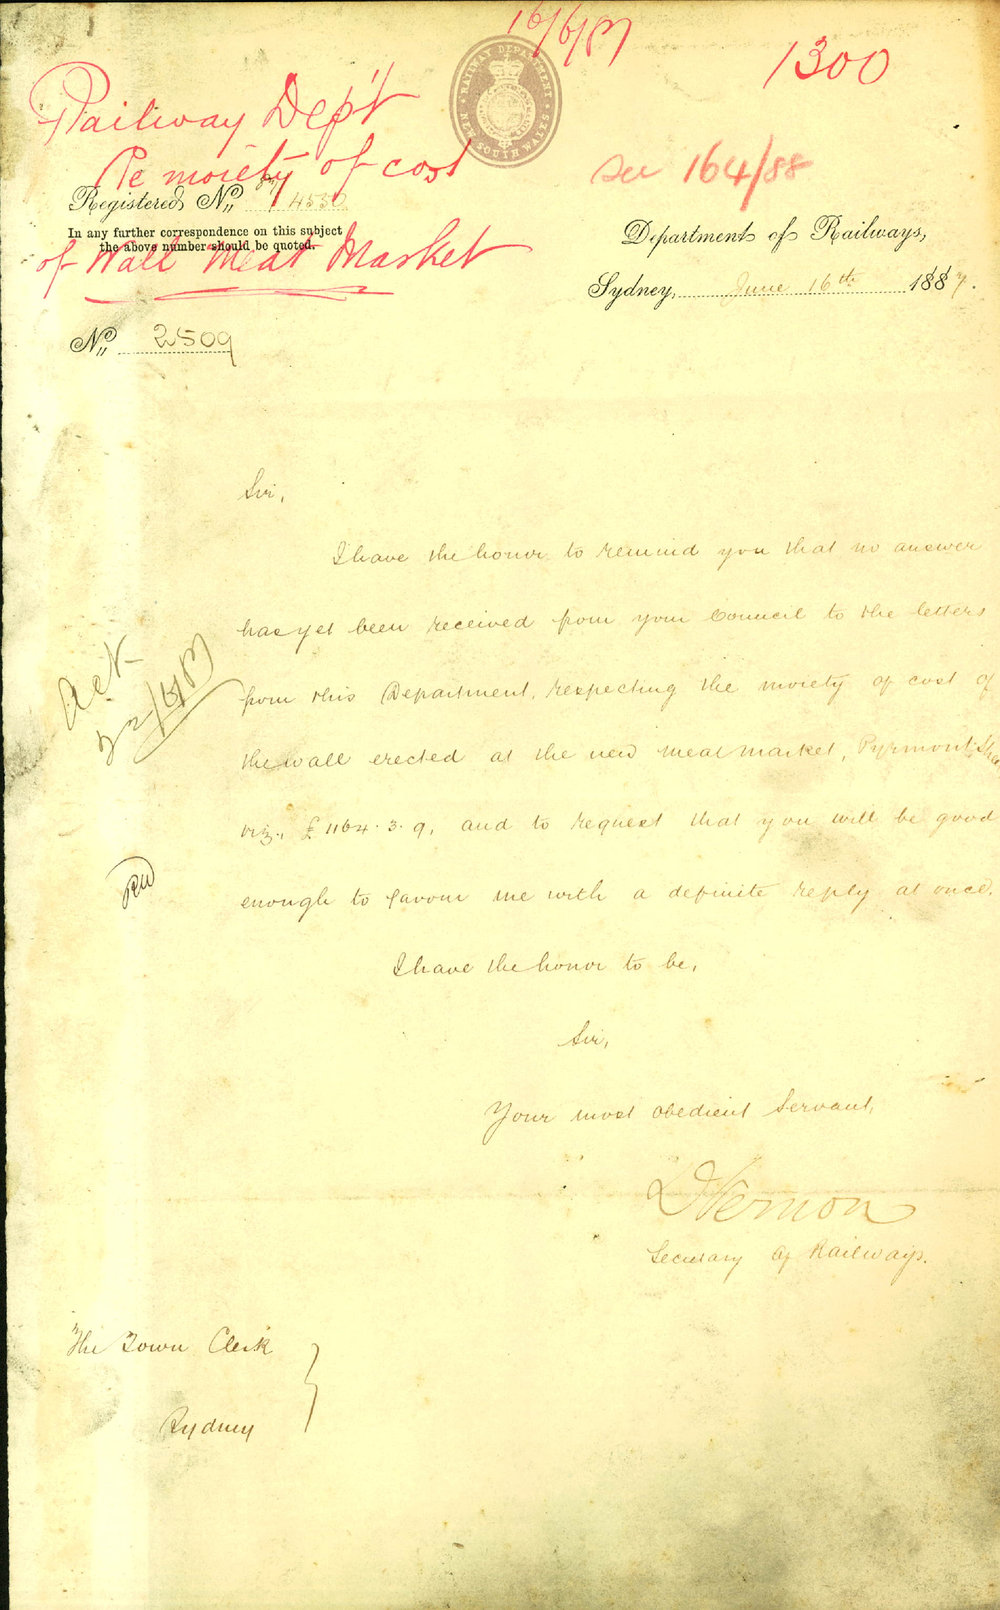 16/6/87
1300
RAILWAY DEPARTMENT
NEW SOUTH WALES
Railway Dep't
Re moiety of cost
of Wall Meat Market
see 164/88
Registered No. 87/4550
In any further correspondence on this subject
the above number should be quoted.
Department of Railways,
Sydney, June 16th 1887.
No. 2509
Sir,
I have the honor to remind you that no answer
has yet been received from your Council to the letters
from this Department, respecting the moiety of cost of
the wall erected at the new meat market, Pyrmont,
viz., £1164.3.9, and to request that you will be good
enough to favour me with a definite reply at once.
I have the honor to be,
Sir,
Your most obedient Servant,
DVernon
Secretary of Railways.
Act
22/6/87
The Town Clerk
Sydney